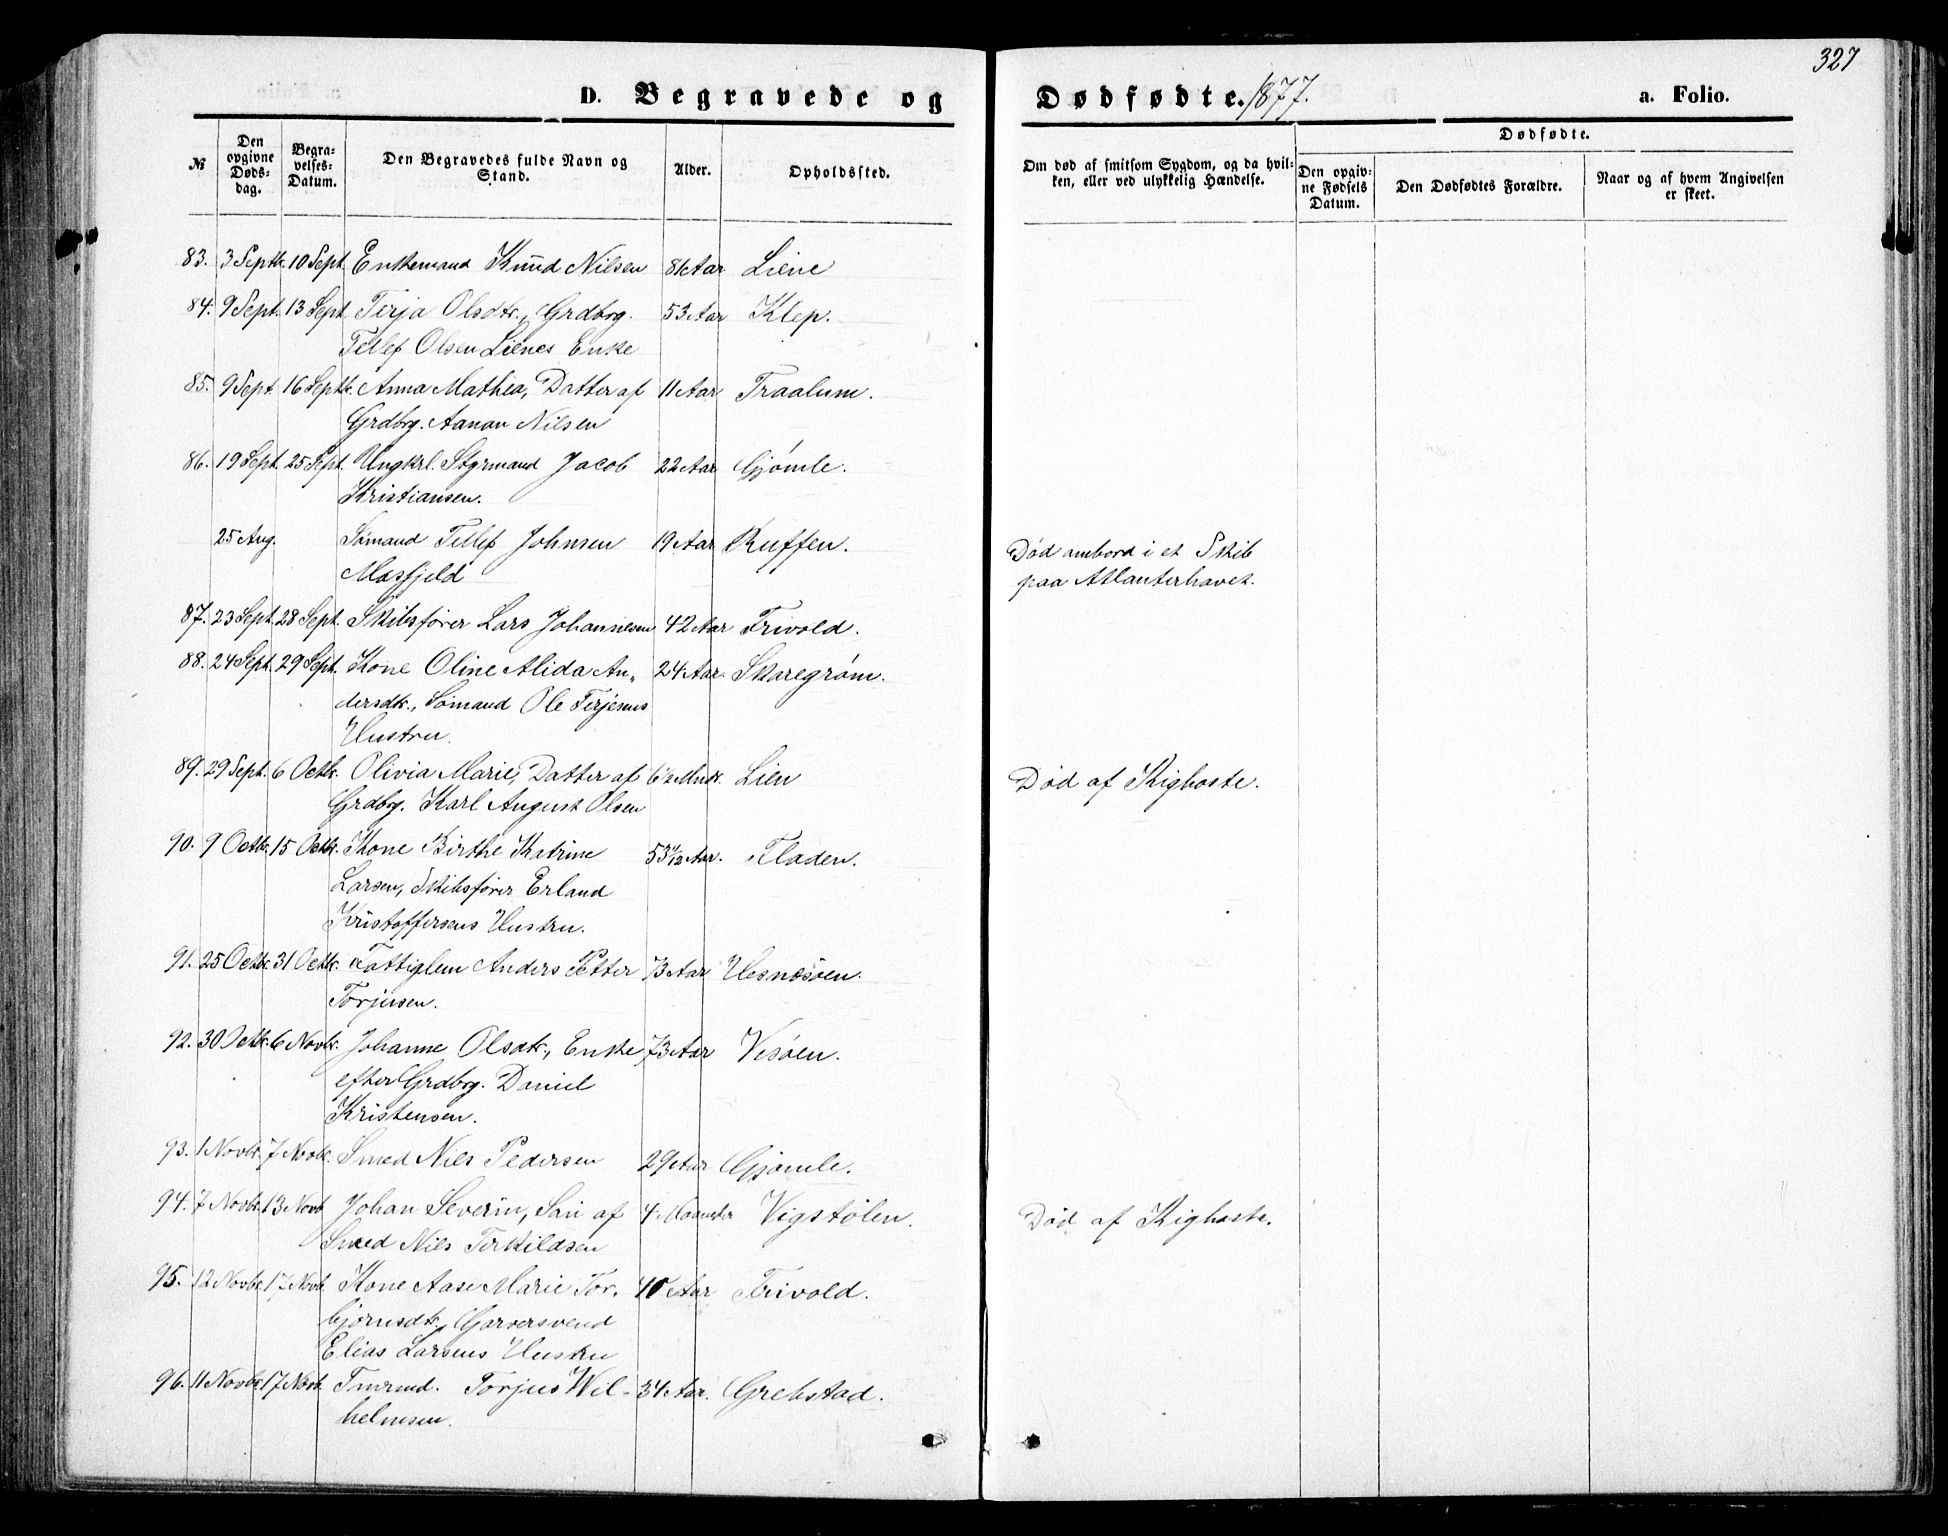 327
D. Begravede og Dødfødte. 1877. a. Folio.
№
Den opgivne Døds-dag.
Begra-velses-Datum.
Den Begravedes fulde Navn og Stand.
Alder.
Opholdssted.
Om død af smitsom Sygdom, og da hvil-ken, eller ved ulykkelig Hændelse.
Dødfødte.
Den opgiv-ne Fødsels Datum.
Den Dødfødtes Forældre.
Naar og af hvem Angivelsen er skeet.
83. 3 Septb. 10 Sept. Enkemand Knud Nilsen 81 Aar Liene
84. 9 Sept. 13 Sept. Terja Olsdtr., Grdbrg. 53 Aar Klep.
Tellef Olsen Lienes Enke
85. 9 Sept. 16 Septb. Anna Mathea, Datter af 11 Aar Traalum.
Grdbrg. Aanan Nilsen
86. 19 Sept. 25 Sept. Ungkrl. Styrmand Jacob 22 Aar Gjømle.
Kristiansen.
25 Aug. Sømand Tellef Johnsen 19 Aar Ruffen. Død ombord i et Skib
Mosfjeld paa Atlanterhavet.
87. 23 Sept. 28 Sept. Skibsfører Lars Johannesen 42 Aar Frivold.
88. 24 Sept. 29 Sept. Kone Oline Alida An„ 24 Aar. Skaregrøm.
dersdtr., Sømand Ole Terjesens
Hustru.
89. 29 Sept. 6 Octb. Olivia Marie, Datter af 6½ Mndr. Lien Død af Kighoste.
Grdbrg. Karl August Olsen
90. 9 Octb. 15 Octb. Kone Birthe Katrine 53 11/12 Aar. Fladen.
Larsen, Skibsfører Erland
Kristoffersens Hustru.
91. 25 Octb. 31 Octb. Fattiglem Anders Petter 73 Aar Hesnesøen.
Torjusen.
92. 30 Octb. 6 Novbr. Johanne Olsdtr., Enke 73 Aar Vesøen.
efter Grdbrg. Daniel
Kristensen.
93. 1 Novbr. 7 Novbr. Smed Nils Pedersen 29 Aar Gjømle.
94. 7 Novbr. 13 Novb Johan Severin, Søn af 4 Maaneder Vigstølen. Død af Kighoste.
Smed Nils Terkildsen
95. 12 Novbr. 17 Novb Kone Aase Marie Tor. 40 Aar Frivold.
bjørnsdtr., Garversvend
Elias Larsens Hustru
96. 11 Novbr. 17 Novb. Tmrmd. Torjus Wil- 34 Aar. Grebstad.
helmsen.